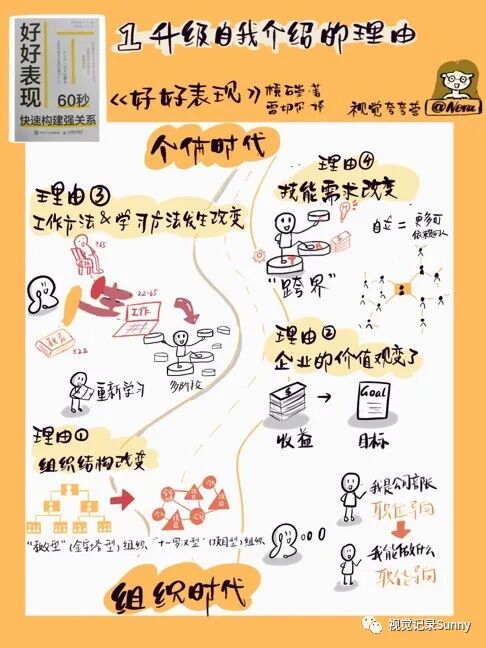 1 升级自我介绍的理由
好好表现
60秒
快速构建强关系
《好好表现》横石崇 著
译
视觉夸夸营
@Nora
个体时代
理由④
技能需求改变
自立 = 更多可
依赖的人
"跨界"
理由③
工作方法&学习方法发生改变
≥65
退休
22-65
工作
教育
≤22
重新学习
多阶段
理由②
企业的价值观变了
收益
Goal
目标
理由①
组织结构改变
(金字塔型)组织
"十一罗汉型"(项目型)组织
我是公司部长
职位导向
我能做什么
职能导向
组织时代
视觉记录Sunny